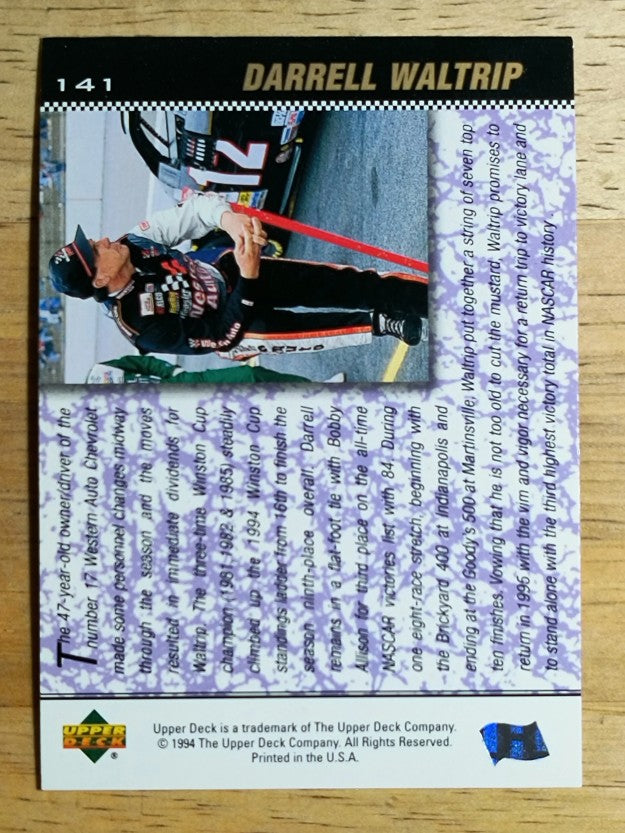 141
DARRELL WALTRIP
12
The 47-year-old owner/driver of the
number 17 Western Auto Chevrolet
made some personnel changes midway
through the season and the moves
resulted in immediate dividends for
Waltrip. The three-time Winston Cup
champion (1981,1982 & 1985) steadily
climbed up the 1994 Winston Cup
standings ladder from 16th to finish the
season ninth-place overall. Darrell
remains in a flat-foot tie with Bobby
Allison for third place on the all-time
NASCAR victories list with 84. During
one eight-race stretch, beginning with
the Brickyard 400 at Indianapolis and
ending at the Goody's 500 at Martinsville, Waltrip put together a string of seven top
ten finishes. Vowing that he is not too old to cut the mustard, Waltrip promises to
return in 1995 with the vim and vigor necessary for a return trip to victory lane and
to stand alone with the third highest victory total in NASCAR history.
UPPER
DECK
®
Upper Deck is a trademark of The Upper Deck Company.
© 1994 The Upper Deck Company. All Rights Reserved.
Printed in the U.S.A.